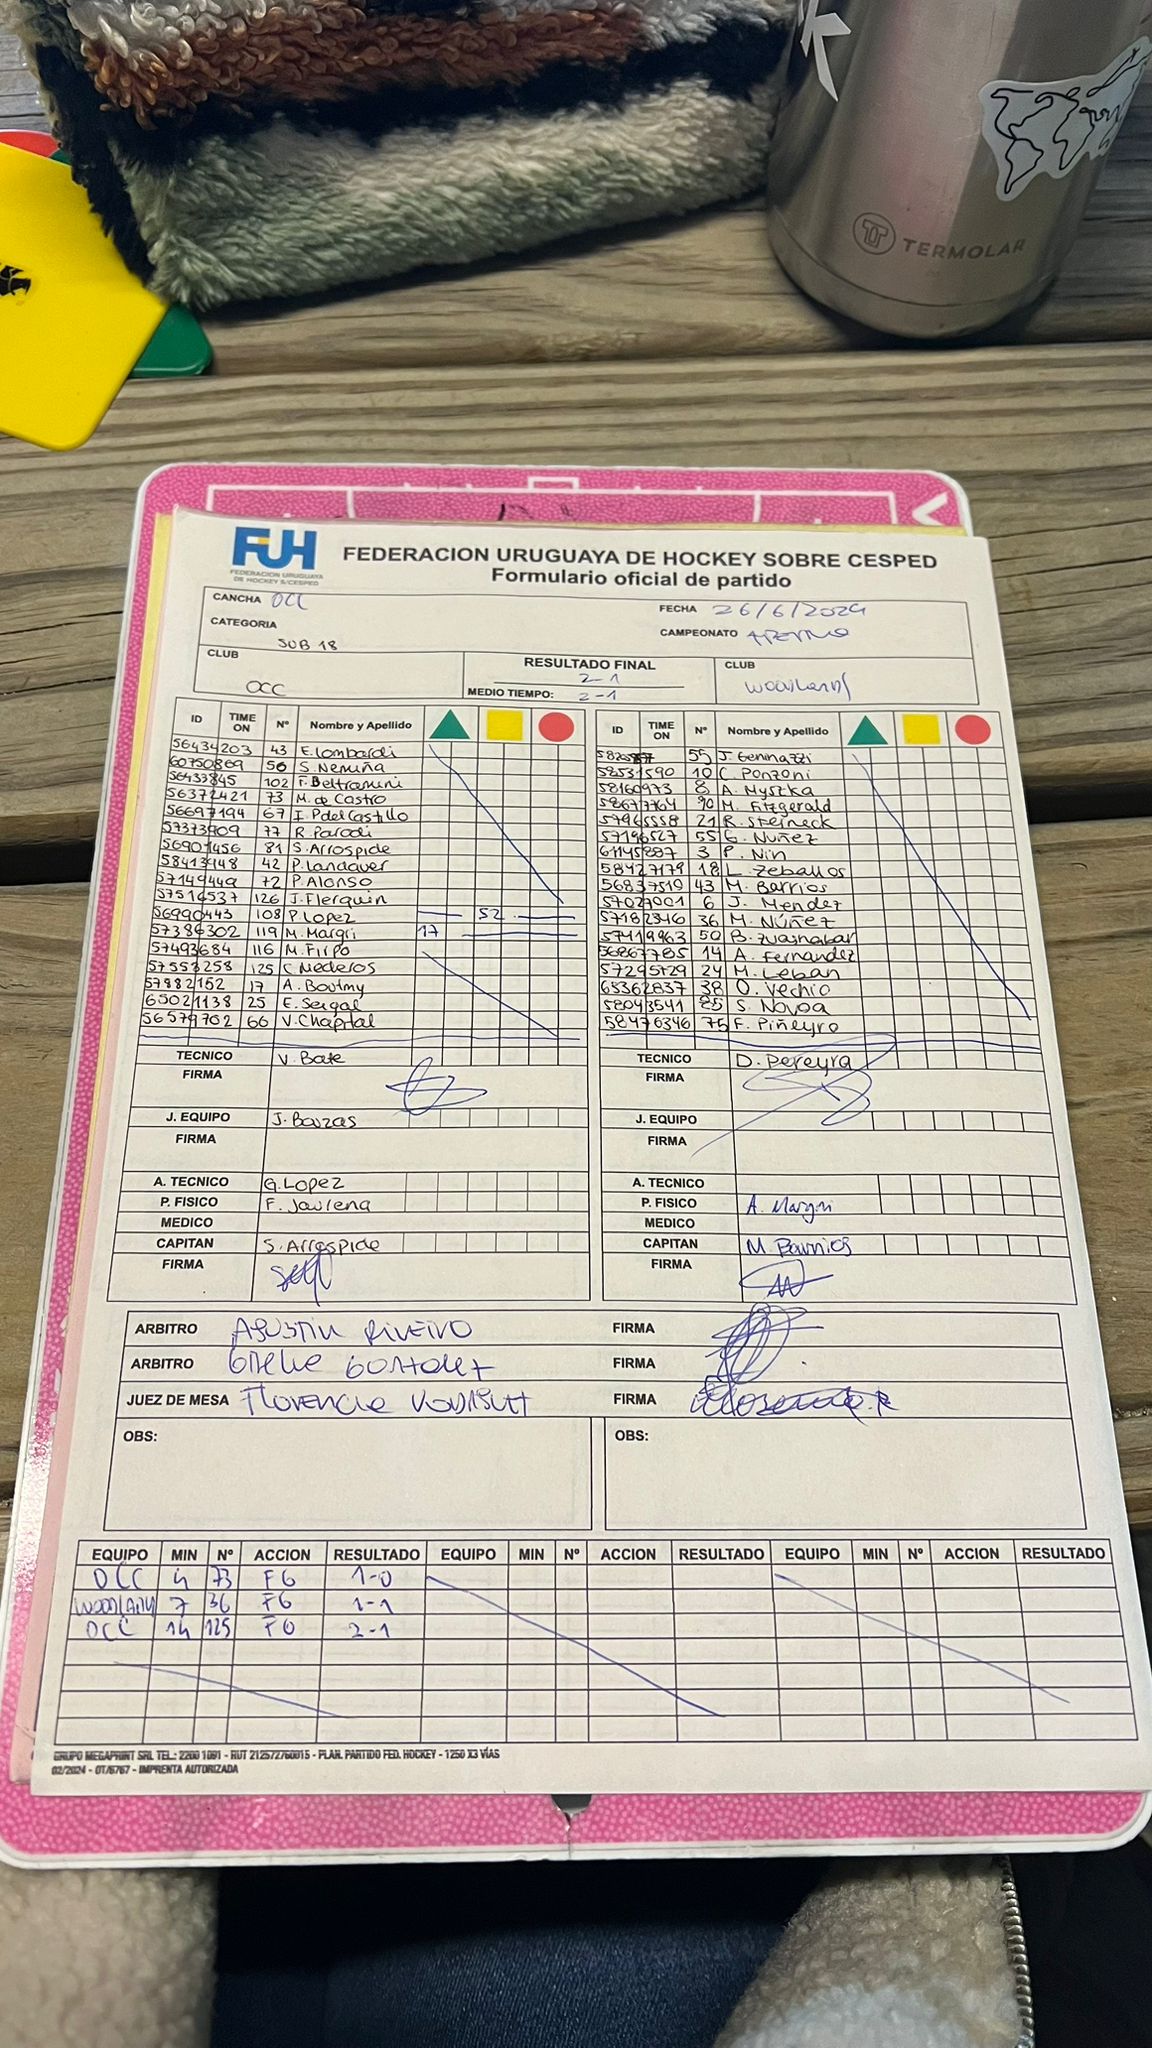 TERMOLAR
FUH
FEDERACION URUGUAYA
DE HOCKEY S/CESPED
FEDERACION URUGUAYA DE HOCKEY SOBRE CESPED
Formulario oficial de partido
CANCHA OCC
FECHA 26/6/2024
CATEGORIA SUB 18
CAMPEONATO
CLUB OCC
RESULTADO FINAL 2-1
MEDIO TIEMPO: 2-1
CLUB Woodlands
ID TIME ON Nº Nombre y Apellido
56434203 43 E. Lombardi
60750869 50 S. Nemiña
56433845 102 F. Beltramini
56372421 73 M. de Castro
56697194 67 I. P del Castillo
57373909 77 R. Parodi
56901456 81 S. Arrospide
58413948 42 P. Landauer
57149449 72 P. Alonso
57516537 126 J. Flerquin
56990443 108 P. Lopez 52
57386302 119 M. Magri 17
57493684 116 M. Firpo
57553258 125 C. Mederos
57882152 17 A. Boutmy
65021138 25 E. Seigal
56579702 66 V. Chapital
TECNICO V. Bate
FIRMA
J. EQUIPO J. Bouzas
FIRMA
A. TECNICO G. Lopez
P. FISICO F. Jaurena
MEDICO
CAPITAN S. Arrospide
FIRMA
ID TIME ON Nº Nombre y Apellido
55 J. Gennazzi
58531590 10 C. Ponzoni
58160973 8 A. Myszka
58677764 90 M. Fitzgerald
57965558 21 R. Steineck
57196527 55 C. Nuñez
61145887 3 P. Nin
58427179 18 L. Zeballos
56837519 43 M. Barrios
57027901 6 J. Mendez
57182346 36 M. Núñez
57419963 50 B. Zuasnabar
56867785 14 A. Fernandez
57295729 24 M. Leban
65362837 38 O. Vechio
58043541 85 S. Novoa
58476346 75 F. Piñeyro
TECNICO D. Pereyra
FIRMA
J. EQUIPO
FIRMA
A. TECNICO
P. FISICO A. Magri
MEDICO
CAPITAN M. Barrios
FIRMA
ARBITRO AGUSTIN RIVEIRO FIRMA
ARBITRO FIRMA
JUEZ DE MESA Florencia FIRMA
OBS: OBS:
EQUIPO MIN Nº ACCION RESULTADO EQUIPO MIN Nº ACCION RESULTADO EQUIPO MIN Nº ACCION RESULTADO
OCC 4 73 FG 1-0
Woodlands 7 36 FG 1-1
OCC 14 125 FG 2-1
GRUPO MEGAPRINT SRL TEL.: 2200 1091 - RUT 212572760015 - PLAN. PARTIDO FED. HOCKEY - 1250 X3 VÍAS
02/2024 - OT/6767 - IMPRENTA AUTORIZADA